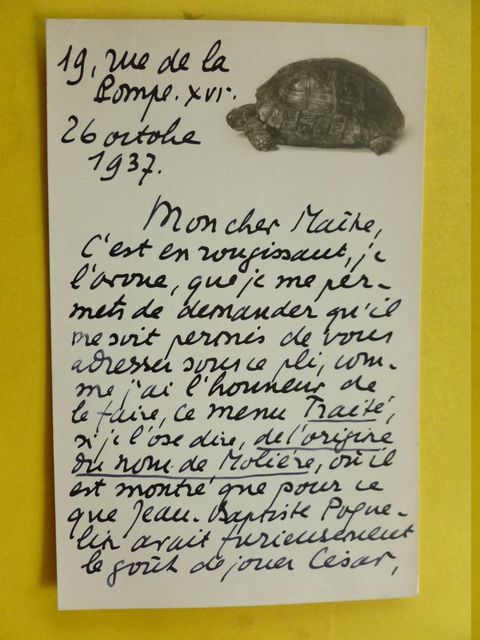 19, rue de la
Pompe. XVIᵉ.
26 octobre
1937.
Mon cher Maître,
C'est en rougissant, je
l'avoue, que je me per-
mets de demander qu'il
me soit permis de vous
adresser sous ce pli, com-
me j'ai l'honneur de
le faire, ce menu Traité,
si je l'ose dire, de l'origine
du nom de Molière, où il
est montré que pour ce
que Jean-Baptiste Poque-
lin avait furieusement
le goût de jouer César,